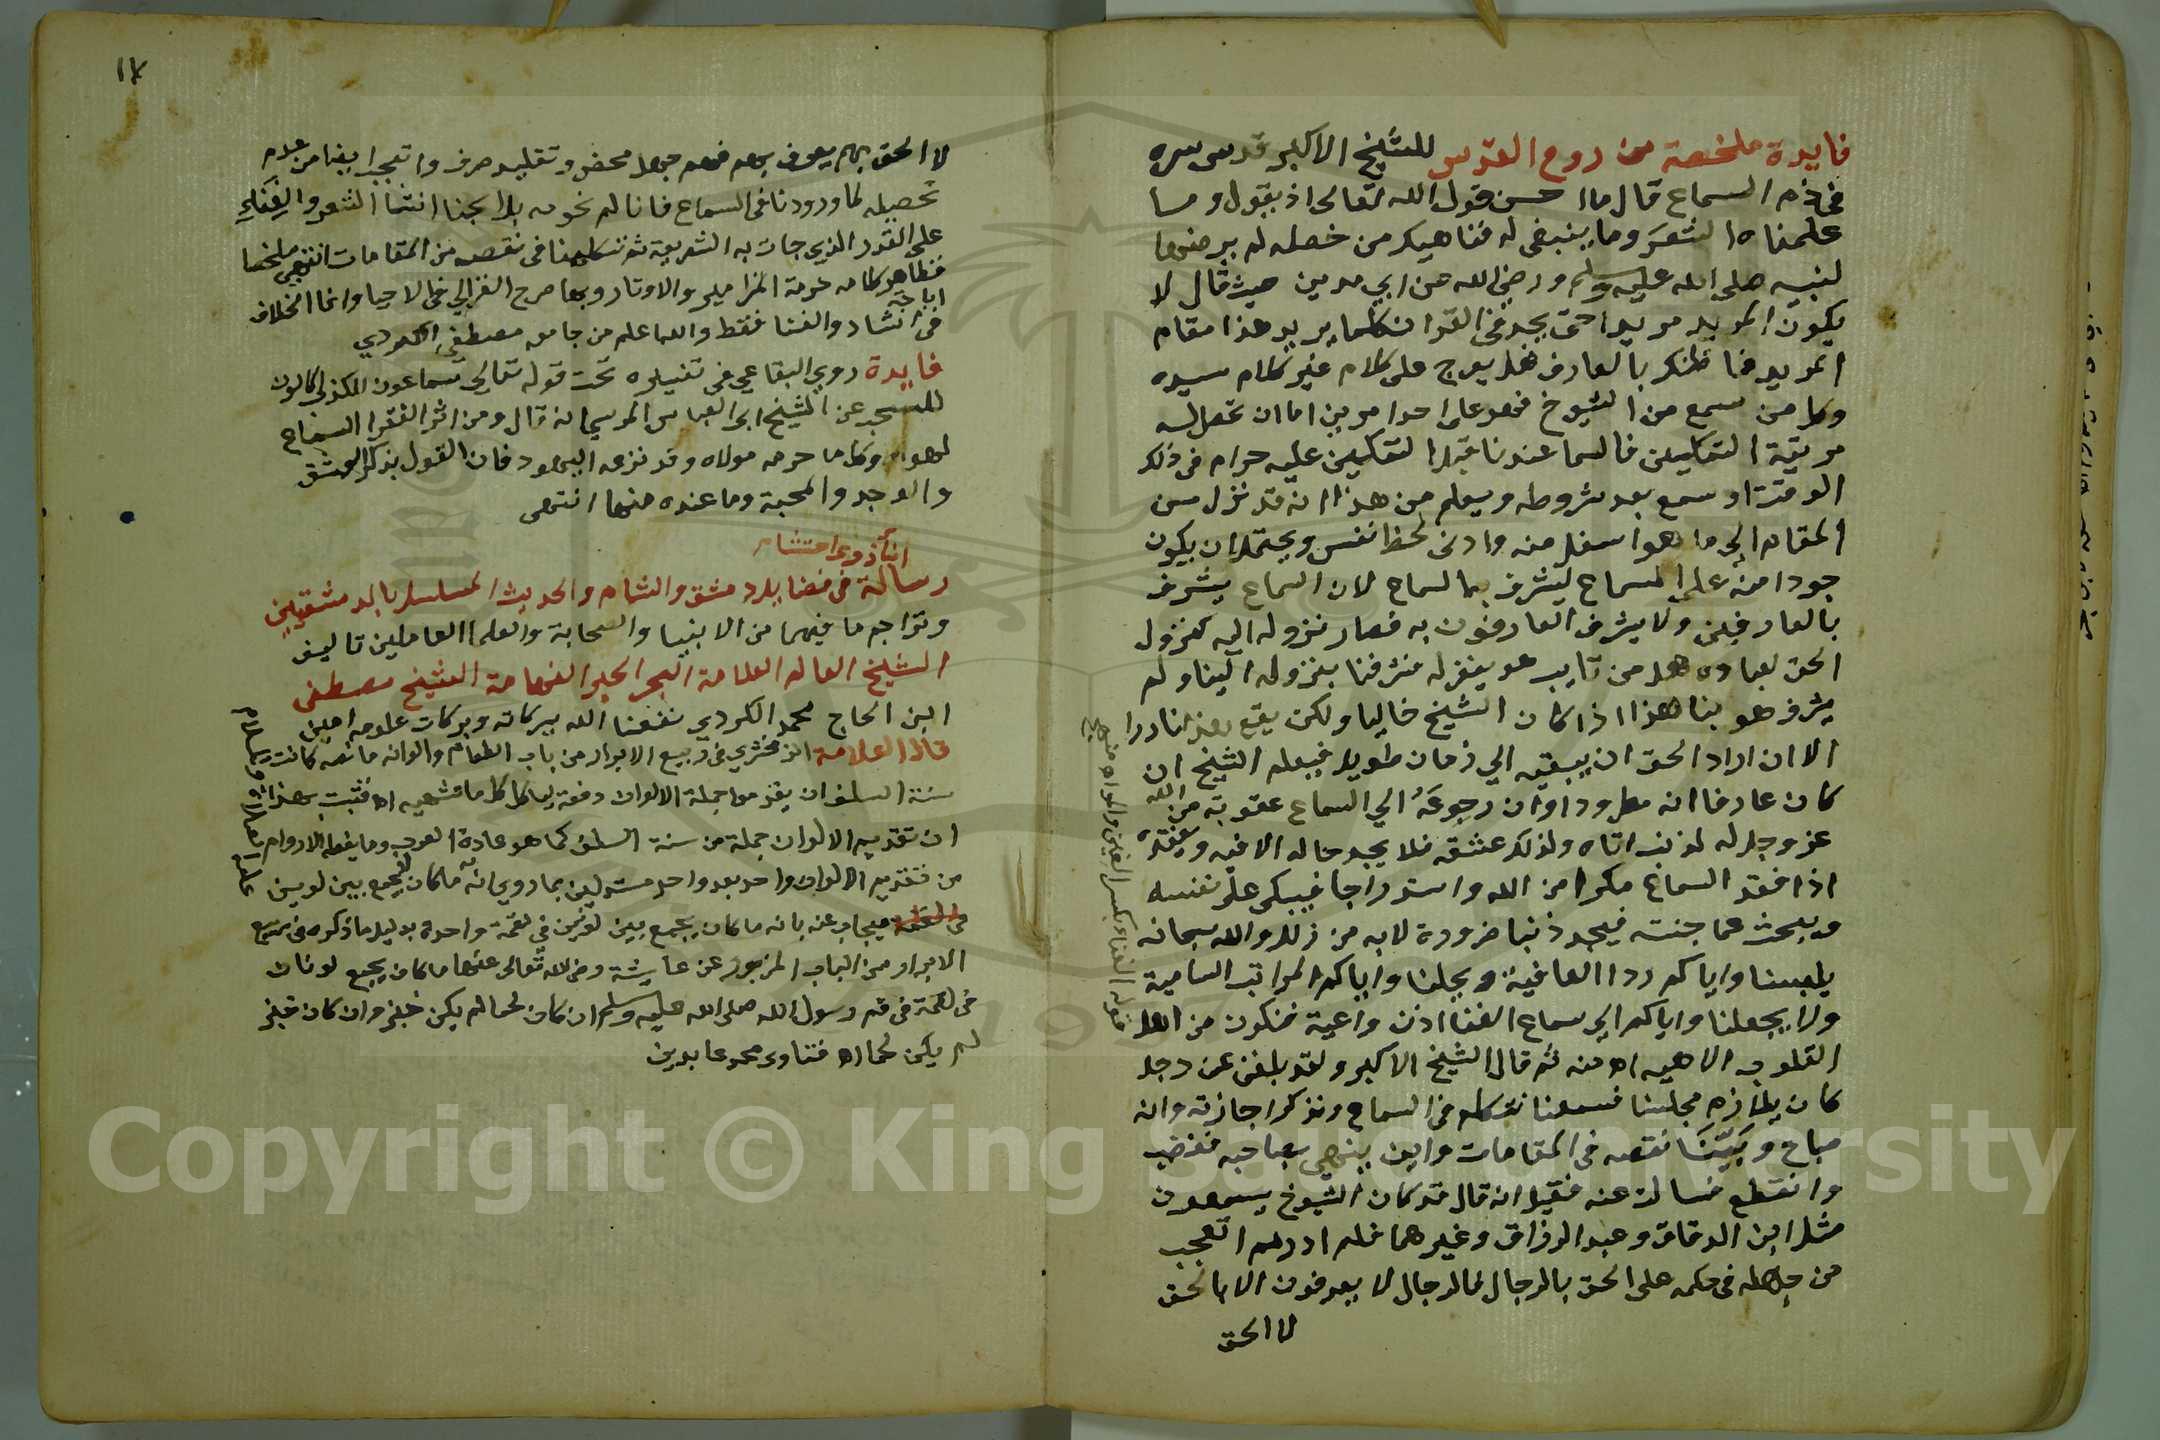 فايدة ملخصة من روح القدس للشيخ الاكبر قدس سره
في ذم السماع قال ما احسن قول الله تعالى اذ يقول وما
علمناه الشعر وما ينبغي له فناهيك من خصله لم يرضها
لنبيه صلى الله عليه وسلم ورضي الله عن ابي مدين حيث قال لا
يكون المريد مريدا حتى يجد في القران كلما يريد هذا مقام
المريد فما ظنك بالعارف هل يعرج على كلام غير كلام سيده
وكل من سمع من الشيوخ فهو على احد امرين اما ان تحصل له
مرتبة التمكين فالسماع عندنا قبل التمكين عليه حرام في ذلك
الوقت او سمع بعد شروطه ويعلم من هذا انه قد نزل من
المقام الى ما هو اسفل منه وادنى لحظ نفس ويحتمل ان يكون
جودا منه على السماع ليشرف بها السماع لان السماع يشرف
بالعارفين ولا يشرف العارفون به فصار نزوله اليه كنزول
الحق لعباده هل من تايب هو يغفر له فشرفنا بنزوله الينا ولم
يشرف هو بنا هذا اذا كان الشيخ خاليا ولكن يقع هذا نادرا
الا ان اراد الحق ان يبقيه الي زمان طويل فيعلم الشيخ ان
كان عارفا انه مطرود وان رجوعه الي السماع عقوبة من الله
عز وجل له لذنب اتاه ولذلك عشقه فلا يجد حاله الا فيه ويفقده
اذا فقد السماع مكرا من الله واستدراجا فيبكي على نفسه
ويبحث عما جنت فيجد ذنبا ضرورة لابد من ذلك والله سبحانه
يلبسنا واياكم ردا العافية ويحلنا واياكم المراتب السامية
ولا يجعلنا واياكم الي سماع الغنا اذن واعية فنكون من اهل
القلوب الاهيه اه منه ثم قال الشيخ الاكبر ولقد بلغني عن رجل
كان يلازم مجلسنا فسمعنا نتكلم في السماع ونذكر اجازته وانه
مباح وبينا نقصه في المقامات واين ينتهي بصاحبه فغضب
وانقطع فسالت عنه فقيل انه قال قد كان الشيوخ يسمعون
مثل ابن الدقاق وعبد الرزاق وغيرهما فلم ادر مم اتعجب
من جهله في حكمه على الحق بالرجال فالرجال لا يعرفون الا بالحق
لا الحق
قوله الغناء بكسر الغين والمد
١٧
لا الحق بهم يعرف بهم فهم جهل محض وتقليد صرف واتعجب ايضا من عدم
تحصيله لما اوردناه في السماع فانا لم نحرمه بل ابحنا انشاا الشعر والغناء
على القدر الذي جات به الشريعة ثم تكلمنا في نقصه من المقامات انتهى ملخصا
فظاهر كلامه حرمة المزامير والاوتار وبها صرح الغزالي في الاحيا وانما الخلاف
في اباحة انشاد والغنا فقط والله اعلم من جامعه مصطفى الكردي
فايدة روي البقاعي في تفسيره تحت قوله تعالى سماعون للكذب اكالون
للسحت عن الشيخ ابي العباس المرسي انه قال ومن اثر الفقرا السماع
لهواه وكل ما حرمه مولاه وقد نزعه اليهود فان القول بذكر العشق
والوجد والمحبة وما عنده منها انتهى
رسالة في فضايل دمشق والشام والحديث المسلسل بالدمشقيين
وتراجم ما فيهما من الانبيا والصحابة والعلما العاملين تاليف
الشيخ العالم العلامة البحر الحبر الفهامة الشيخ مصطفى
ابن الحاج محمد الكردي نفعنا الله ببركاته وبركات علومه امين
قال العلامة الزمخشري في ربيع الابرار من باب الطعام والوانه ما نصه كانت
سنة السلف ان يقدموا جملة الالوان دفعة لياكل كل ما يشتهيه اه فثبت بهذا
ان تقديم الالوان جملة من سنة السلف كما هو عادة العرب وما يفعله الاروام
من تقديم الالوان واحد بعد واحد مستدلين بما روي انه ما كان يجمع بين لونين
فيجاب عنه بانه ما كان يجمع بين لونين في لقمة واحدة بدليل ما ذكره في ربيع
الابرار من الباب المزبور عن عايشة رضي الله تعالى عنها ما كان يجمع لونان
في لقمة في فم رسول الله صلى الله عليه وسلم ان كان لحما لم يكن خبز وان كان خبز
لم يكن لحما اه فتاوى محمد عابدين
Copyright © King Saud University